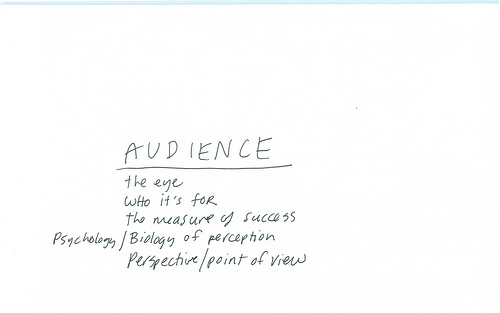 AUDIENCE
the eye
WHO it's FOR
the measure of success
Psychology/Biology of perception
Perspective/point of view